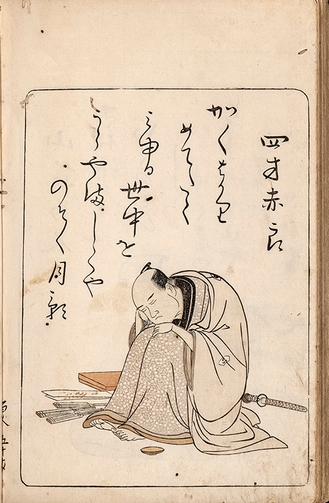 四方赤良
かくはかり
めてたく
みゆる
世中を
うらやましくや
のそく月影